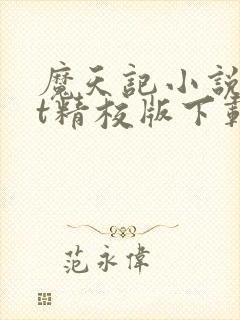 魔天記小說
t精校版下載
范永偉